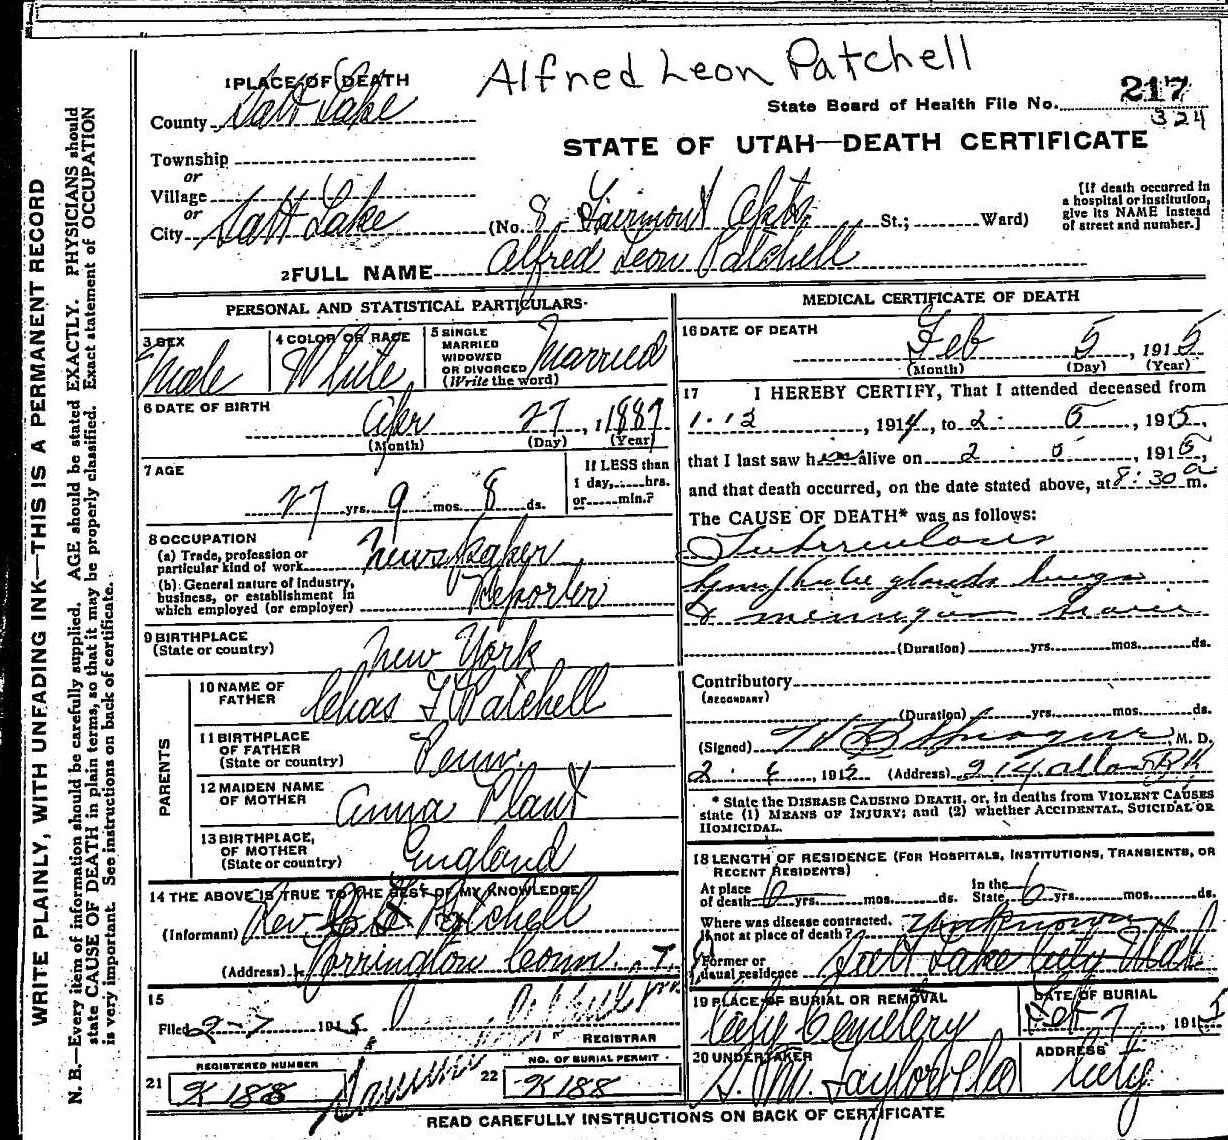 Alfred Leon Patchell
1 PLACE OF DEATH
County Salt Lake
State Board of Health File No. 217
324
STATE OF UTAH—DEATH CERTIFICATE
Township
or
Village
or
City Salt Lake (No. 8 Fairmont Apts. St.; Ward)
[If death occurred in
a hospital or institution,
give its NAME instead
of street and number.]
2 FULL NAME Alfred Leon Patchell
PERSONAL AND STATISTICAL PARTICULARS
3 SEX Male
4 COLOR OR RACE White
5 SINGLE
MARRIED
WIDOWED
OR DIVORCED
(Write the word) Married
6 DATE OF BIRTH
Apr 27, 1887
(Month) (Day) (Year)
7 AGE
27 yrs. 9 mos. 8 ds.
If LESS than
1 day, hrs.
or min.?
8 OCCUPATION
(a) Trade, profession or
particular kind of work Newspaper
(b) General nature of industry,
business, or establishment in
which employed (or employer) Reporter
9 BIRTHPLACE
(State or country) New York
PARENTS
10 NAME OF
FATHER Chas F Patchell
11 BIRTHPLACE
OF FATHER
(State or country) Penn.
12 MAIDEN NAME
OF MOTHER Anna Plant
13 BIRTHPLACE,
OF MOTHER
(State or country) England
14 THE ABOVE IS TRUE TO THE BEST OF MY KNOWLEDGE
(Informant) Rev. C F Patchell
(Address) Torrington Conn.
15
Filed 2-7 1915
REGISTRAR
REGISTERED NUMBER
21 K 188
NO. OF BURIAL PERMIT
22 K 188
MEDICAL CERTIFICATE OF DEATH
16 DATE OF DEATH
Feb 5, 1915
(Month) (Day) (Year)
17 I HEREBY CERTIFY, That I attended deceased from
1-12, 1914, to 2 5, 1915,
that I last saw him alive on 2 5, 1915,
and that death occurred, on the date stated above, at 8:30 a m.
The CAUSE OF DEATH* was as follows:
Tuberculosis
lymphatic glands lungs
&
(Duration) yrs. mos. ds.
Contributory
(SECONDARY)
(Duration) yrs. mos. ds.
(Signed) M. D.
2 191 (Address) 214
* State the DISEASE CAUSING DEATH, or, in deaths from VIOLENT CAUSES
state (1) MEANS OF INJURY; and (2) whether ACCIDENTAL, SUICIDAL OR
HOMICIDAL.
18 LENGTH OF RESIDENCE (FOR HOSPITALS, INSTITUTIONS, TRANSIENTS, OR
RECENT RESIDENTS)
At place
of death 6 yrs. mos. ds.
In the
State 6 yrs. mos. ds.
Where was disease contracted,
if not at place of death? Unknown
Former or
usual residence Salt Lake City Utah
19 PLACE OF BURIAL OR REMOVAL
City Cemetery
DATE OF BURIAL
Feb 7, 1915
20 UNDERTAKER
S. M. Taylor & Co
ADDRESS
City
READ CAREFULLY INSTRUCTIONS ON BACK OF CERTIFICATE
WRITE PLAINLY, WITH UNFADING INK—THIS IS A PERMANENT RECORD
N. B.—Every item of information should be carefully supplied. AGE should be stated EXACTLY. PHYSICIANS should
state CAUSE OF DEATH in plain terms, so that it may be properly classified. Exact statement of OCCUPATION
is very important. See instructions on back of certificate.